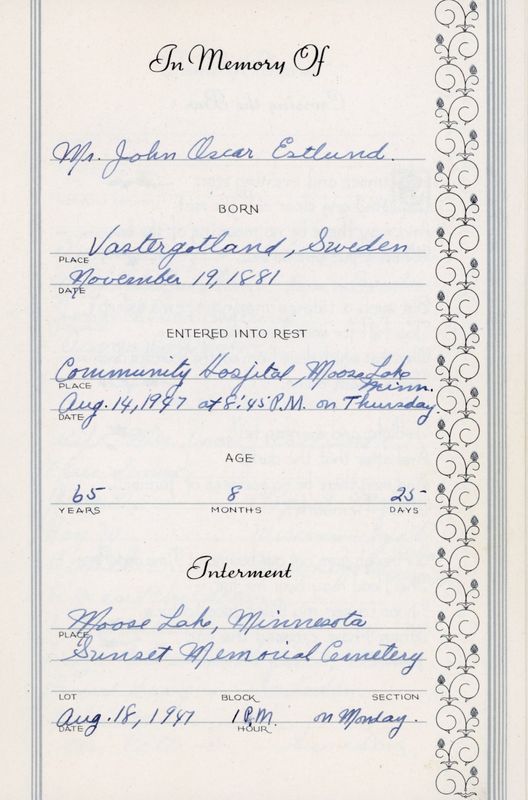 In Memory Of
Mr. John Oscar Estlund.
BORN
Vastergotland, Sweden
PLACE
November 19, 1881
DATE
ENTERED INTO REST
Community Hospital, Moose Lake
Minn.
PLACE
Aug. 14, 1947 at 8:45 P.M. on Thursday.
DATE
AGE
65 8 25
YEARS MONTHS DAYS
Interment
Moose Lake, Minnesota
PLACE
Sunset Memorial Cemetery
LOT BLOCK SECTION
Aug. 18, 1947 1 P.M. on Monday.
DATE HOUR